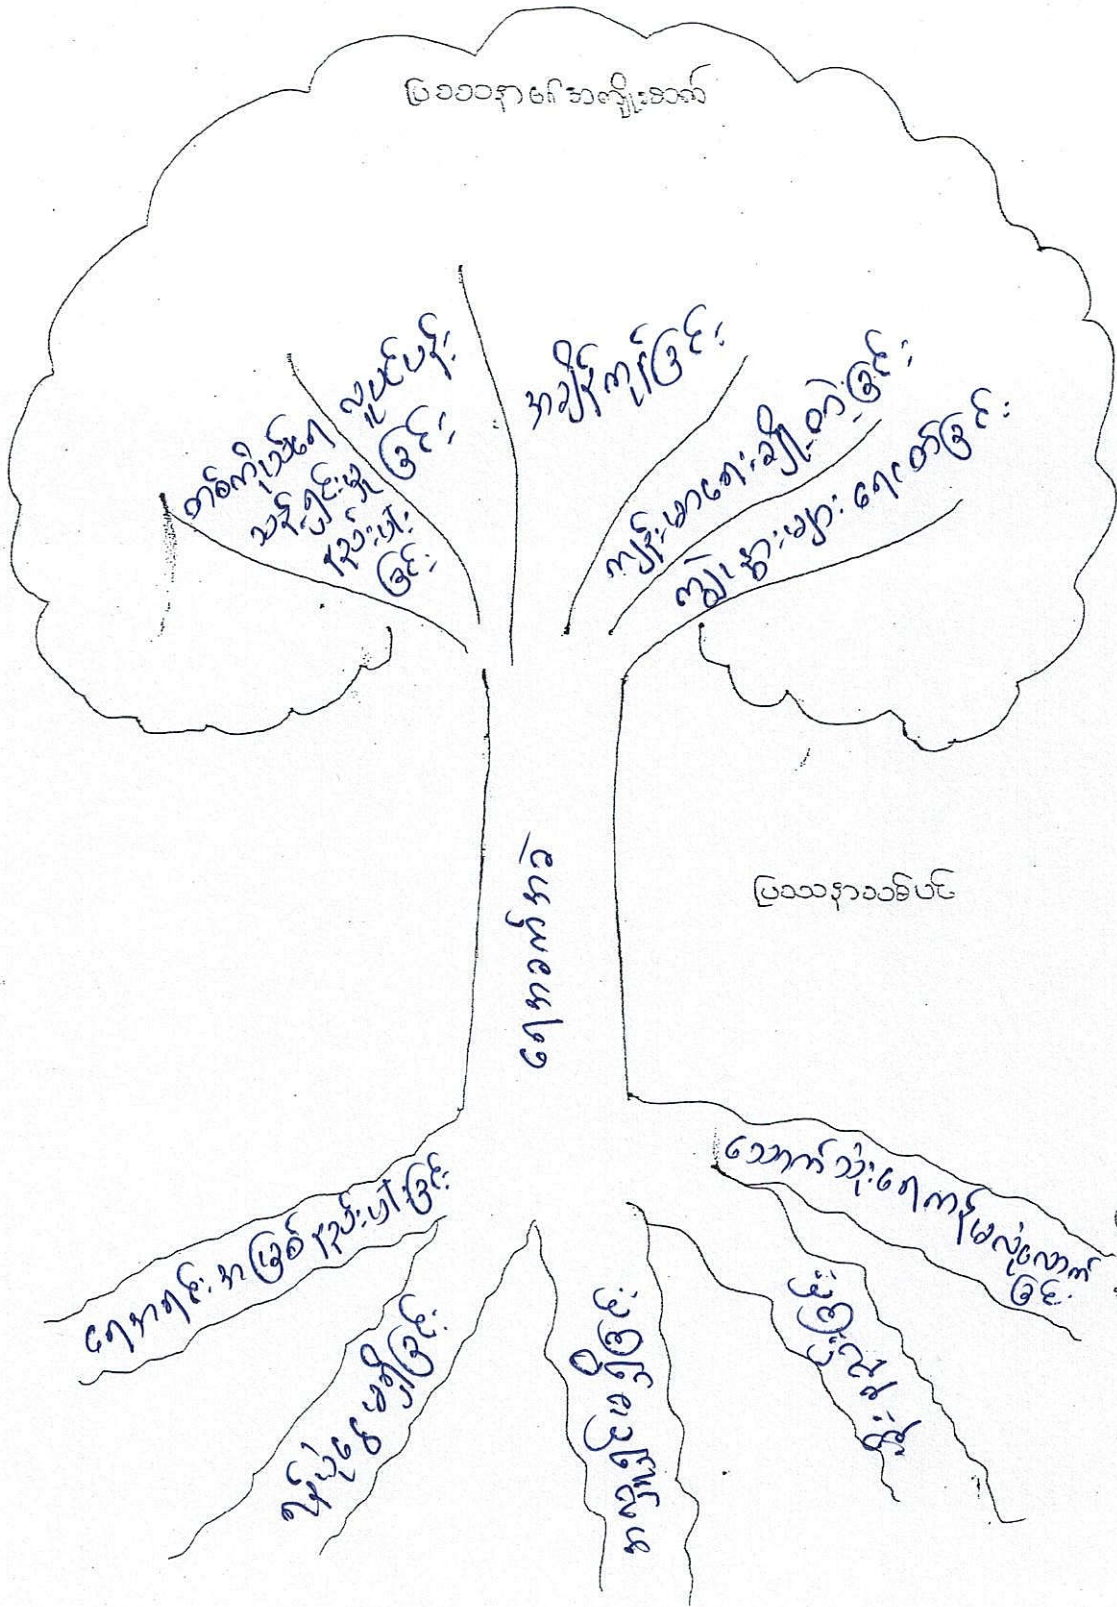 ပြဿနာ၏အကျိုးဆက်
တစ်ကိုယ်ရေ
သန့်ရှင်းမှု
နည်းပါး
ခြင်း
လူပင်ပန်း
ခြင်း
အချိန်ကုန်ခြင်း
ကျန်းမာရေးချို့တဲ့ခြင်း
ကျွဲ၊ နွားများ ရေငတ်ခြင်း
ရေအခက်အခဲ
ပြဿနာသစ်ပင်
ရေအရင်းအမြစ် နည်းပါးခြင်း
ရန်ပုံငွေ မရှိခြင်း
အလှူရှင် မရှိခြင်း
သောက်သုံးရေကန် မလုံလောက်
ခြင်း